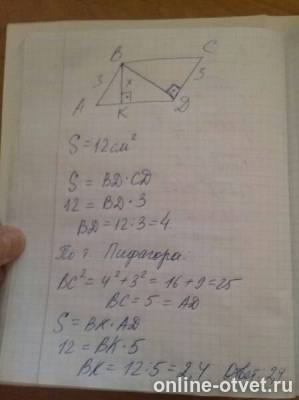 B
C
3
x
3
A
K
D
S = 12 см²
S = BD · CD
12 = BD · 3
BD = 12 : 3 = 4
По т. Пифагора:
BC² = 4² + 3² = 16 + 9 = 25
BC = 5 = AD
S = BK · AD
12 = BK · 5
BK = 12 : 5 = 2,4 Ответ: 2,4
online-otvet.ru